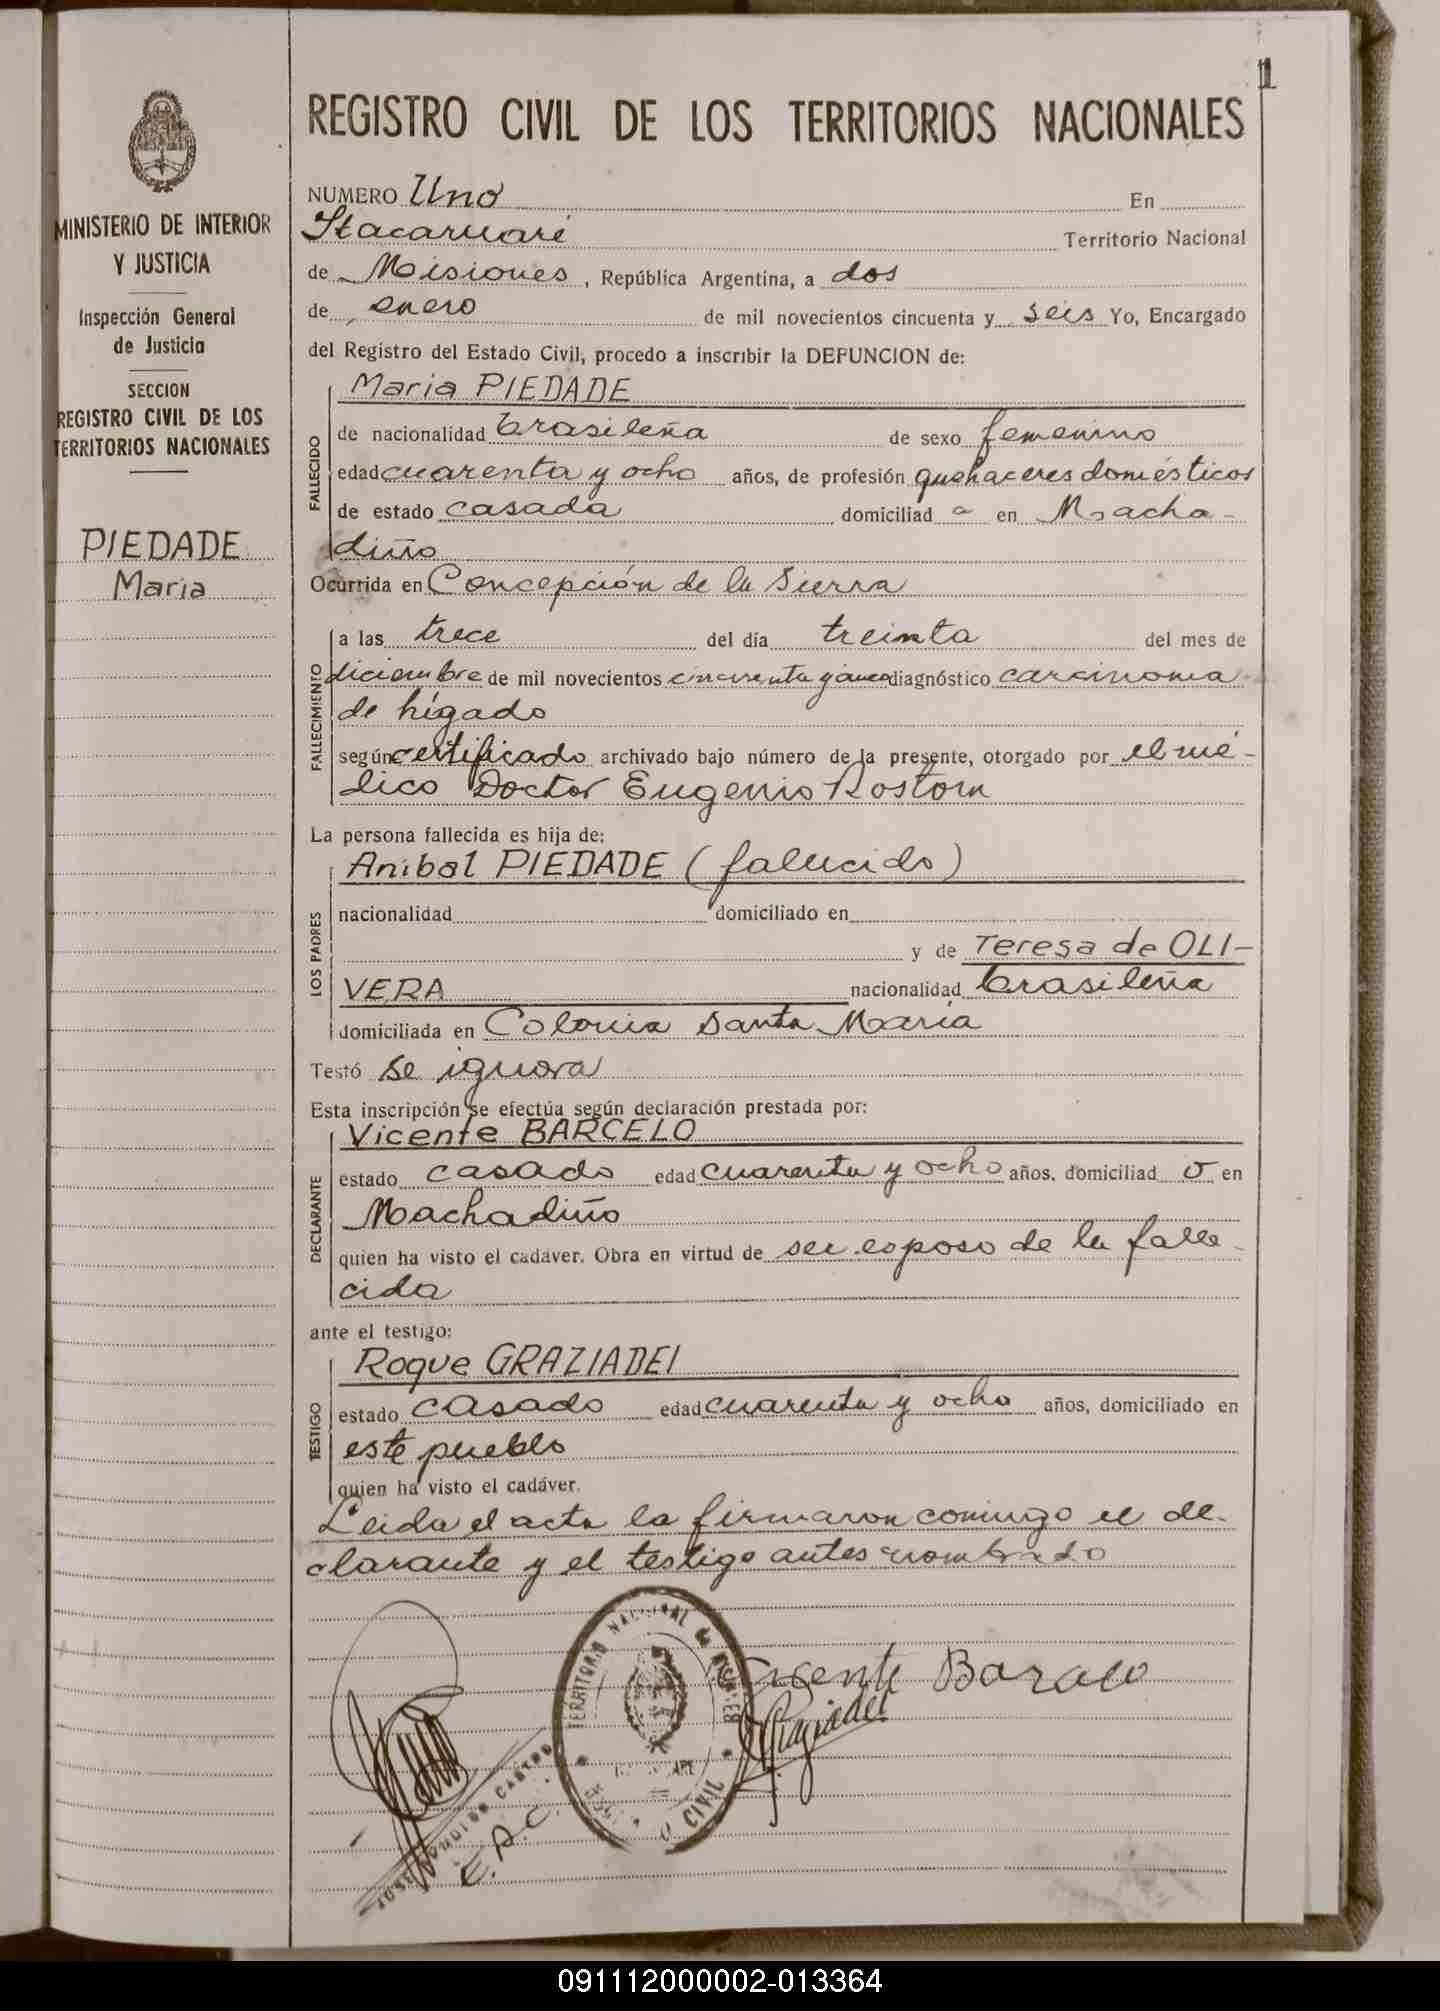 1
MINISTERIO DE INTERIOR
Y JUSTICIA
Inspección General
de Justicia
SECCION
REGISTRO CIVIL DE LOS
TERRITORIOS NACIONALES
PIEDADE
Maria
REGISTRO CIVIL DE LOS TERRITORIOS NACIONALES
NUMERO Uno En
Itacaruaré Territorio Nacional
de Misiones, República Argentina, a dos
de enero de mil novecientos cincuenta y seis Yo, Encargado
del Registro del Estado Civil, procedo a inscribir la DEFUNCION de:
FALLECIDO
Maria PIEDADE
de nacionalidad brasileña de sexo femenino
edad cuarenta y ocho años, de profesión quehaceres domésticos
de estado casada domiciliad a en Macha-
diño
Ocurrida en Concepción de la Sierra
FALLECIMIENTO
a las trece del día treinta del mes de
diciembre de mil novecientos cincuenta y cinco diagnóstico carcinoma
de hígado
según certificado archivado bajo número de la presente, otorgado por el mé-
dico Doctor Eugenio Rostom
La persona fallecida es hija de:
LOS PADRES
Anibal PIEDADE (fallecido)
nacionalidad domiciliado en
y de Teresa de OLI-
VERA nacionalidad brasileña
domiciliada en Colonia Santa María
Testó se ignora
Esta inscripción se efectúa según declaración prestada por:
DECLARANTE
Vicente BARCELO
estado casado edad cuarenta y ocho años, domiciliad o en
Machadiño
quien ha visto el cadáver. Obra en virtud de ser esposo de la falle-
cida
ante el testigo:
TESTIGO
Roque GRAZIADEI
estado casado edad cuarenta y ocho años, domiciliado en
este pueblo
quien ha visto el cadáver.
Leida el acta la firmaron conmigo el de-
clarante y el testigo antes nombrado
TERRITORIO NACIONAL de MISIONES
CIVIL
Graziadei
CASTRO
E.R.C.
091112000002-013364